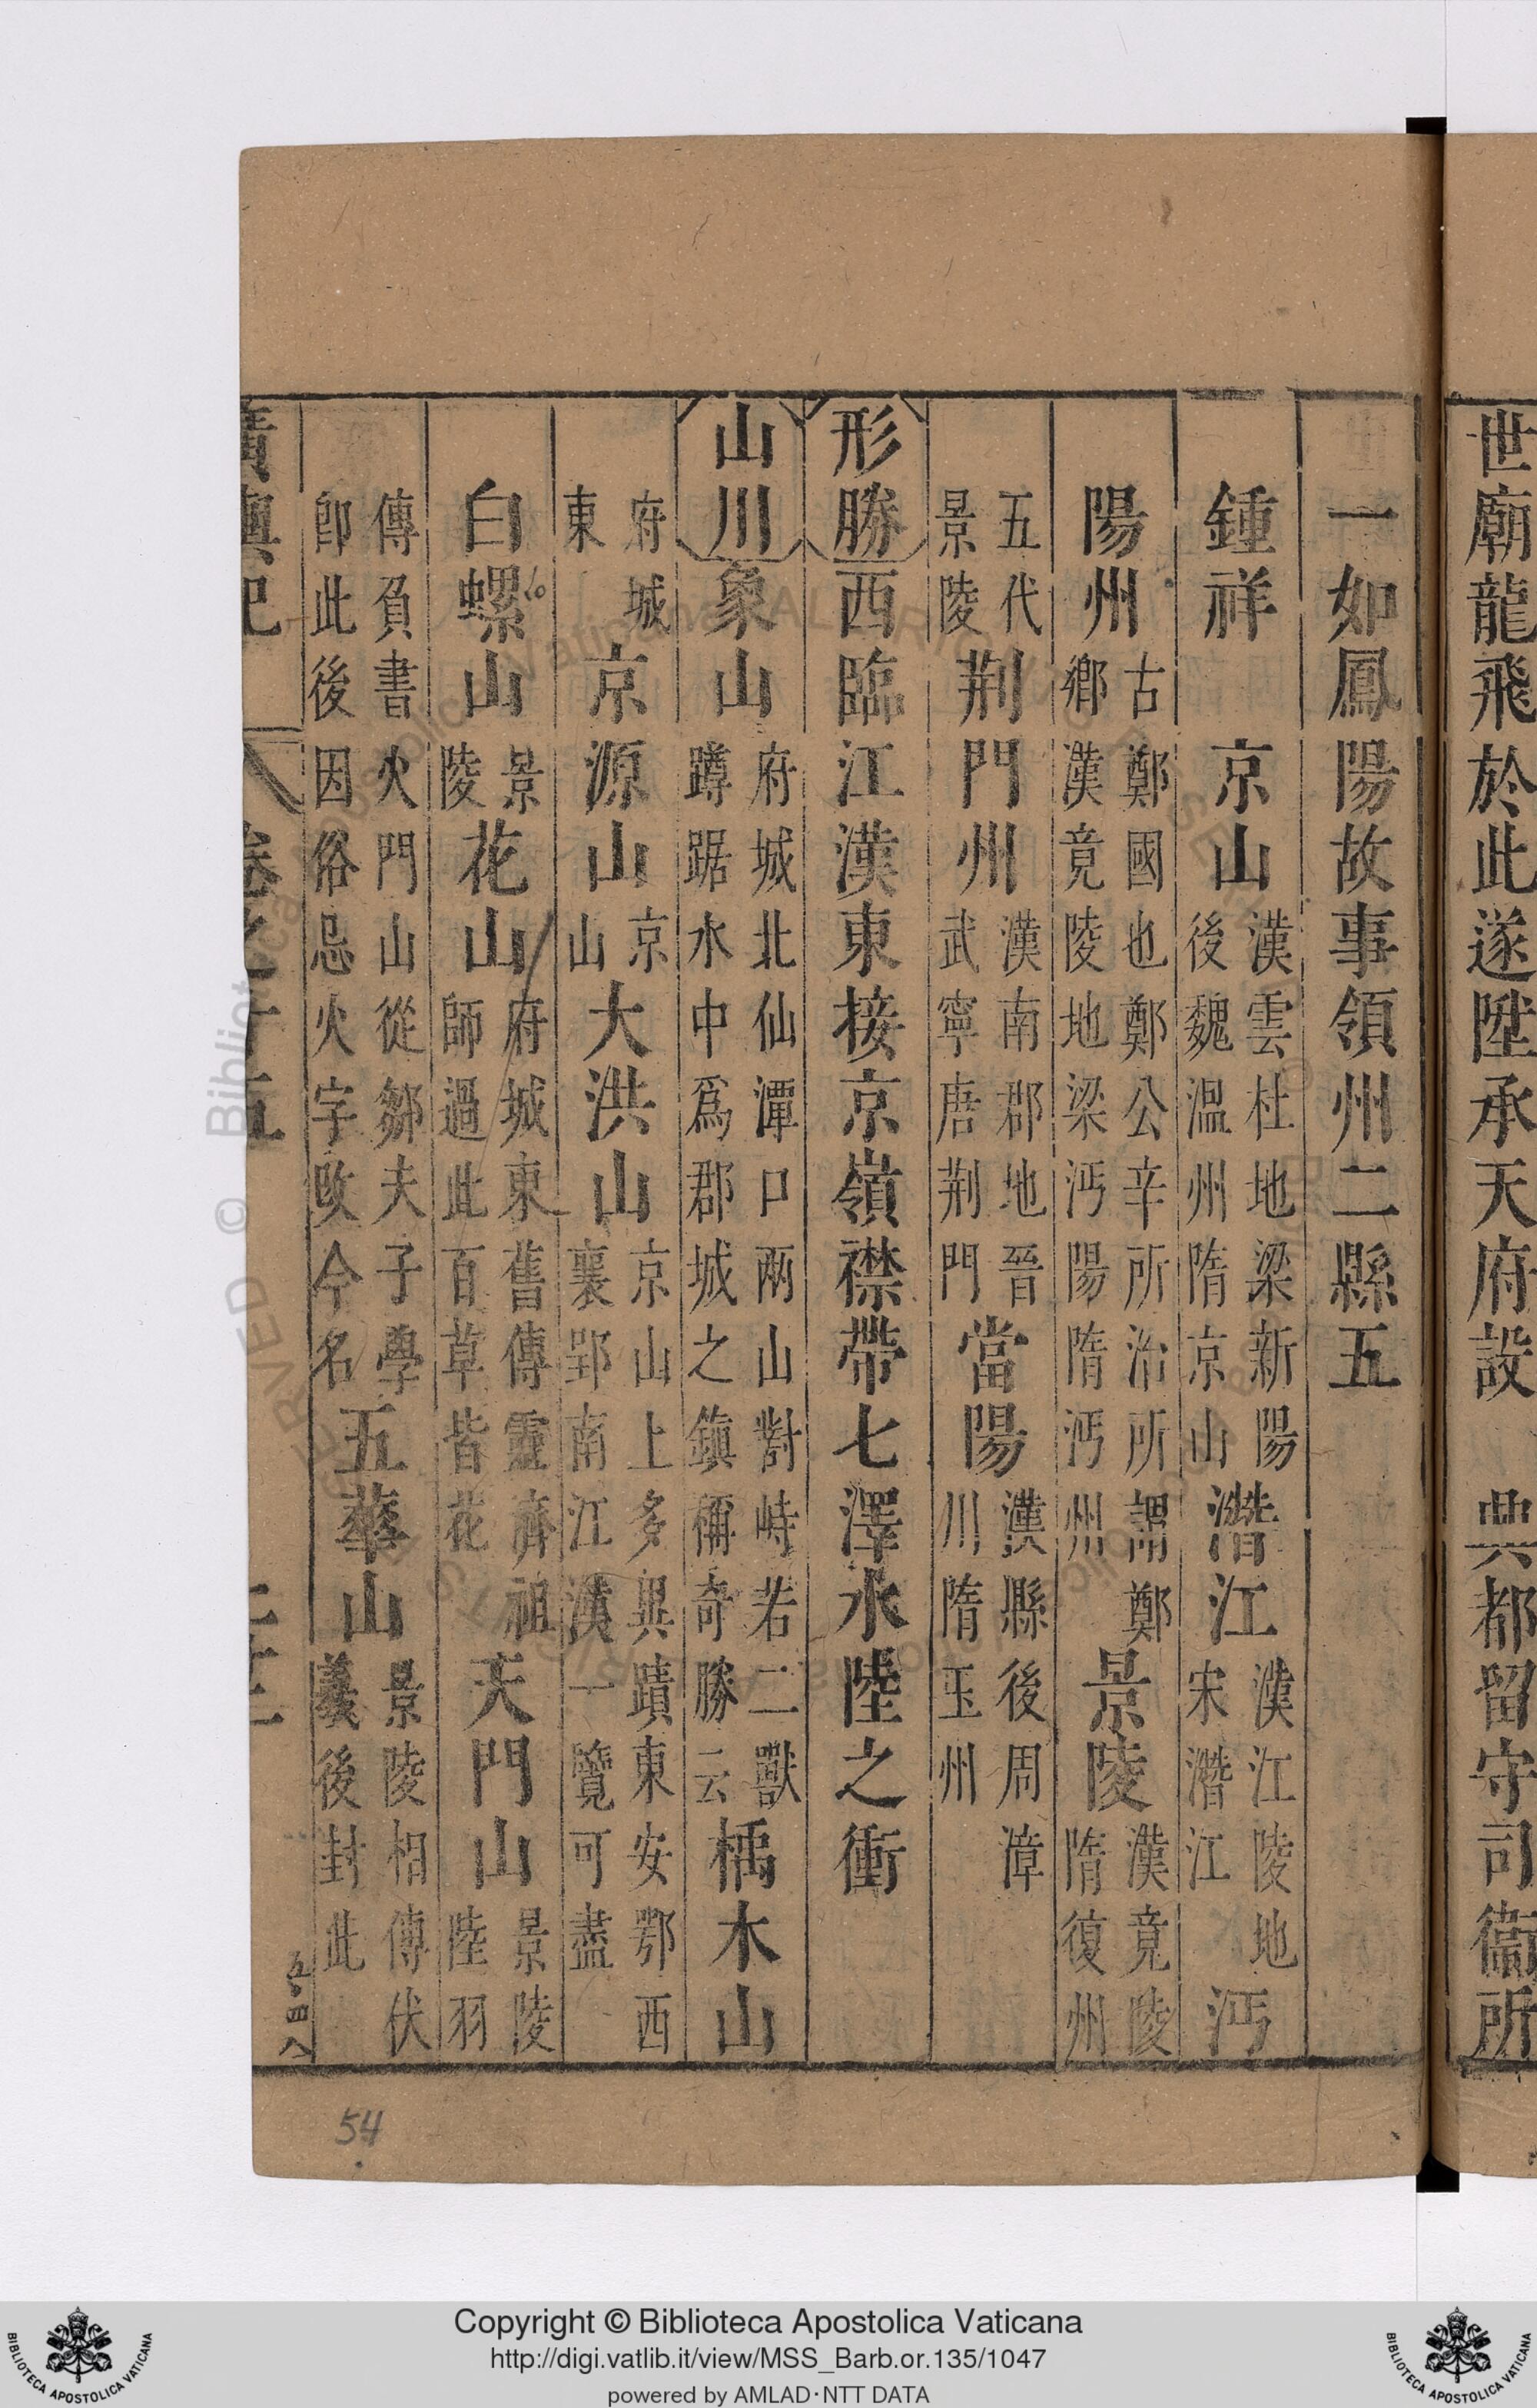 世廟龍飛於此遂陞承天府設 興都留守司衞所
一如鳳陽故事領州二縣五
鍾祥 京山 漢雲杜地梁新陽後魏温州隋京山 潛江 漢江陵地宋潛江 沔
陽州 古鄭國也鄭公辛所治所謂鄭鄉漢竟陵地梁沔陽隋沔州 景陵 漢竟陵隋復州
五代景陵 荆門州 漢南郡地晉武寧唐荆門 當陽 漢縣後周漳川隋玉州
形勝 西臨江漢東接京嶺襟帶七澤水陸之衝
山川 象山 府城北仙潭口兩山對峙若二獸蹲踞水中爲郡城之鎮稱奇勝云 橘木山
府城東 京源山 京山 大洪山 京山上多異蹟東安鄂西襄郢南江漢一覽可盡
白螺山 景陵 花山 府城東舊傳靈濟祖師過此百草皆花 天門山 景陵陸羽
傳負書火門山從鄒夫子學卽此後因俗忌火字改今名 五華山 景陵相傳伏羲後封此
廣輿記 卷之十五
54
Copyright © Biblioteca Apostolica Vaticana
http://digi.vatlib.it/view/MSS_Barb.or.135/1047
powered by AMLAD·NTT DATA
BIBLIOTECA APOSTOLICA VATICANA
BIBLIOTECA APOSTOLICA VATICANA